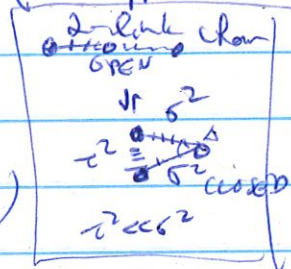 2-link chain
OPEN
vs σ²
τ² Δ
σ²
CLOSED
τ² << σ²